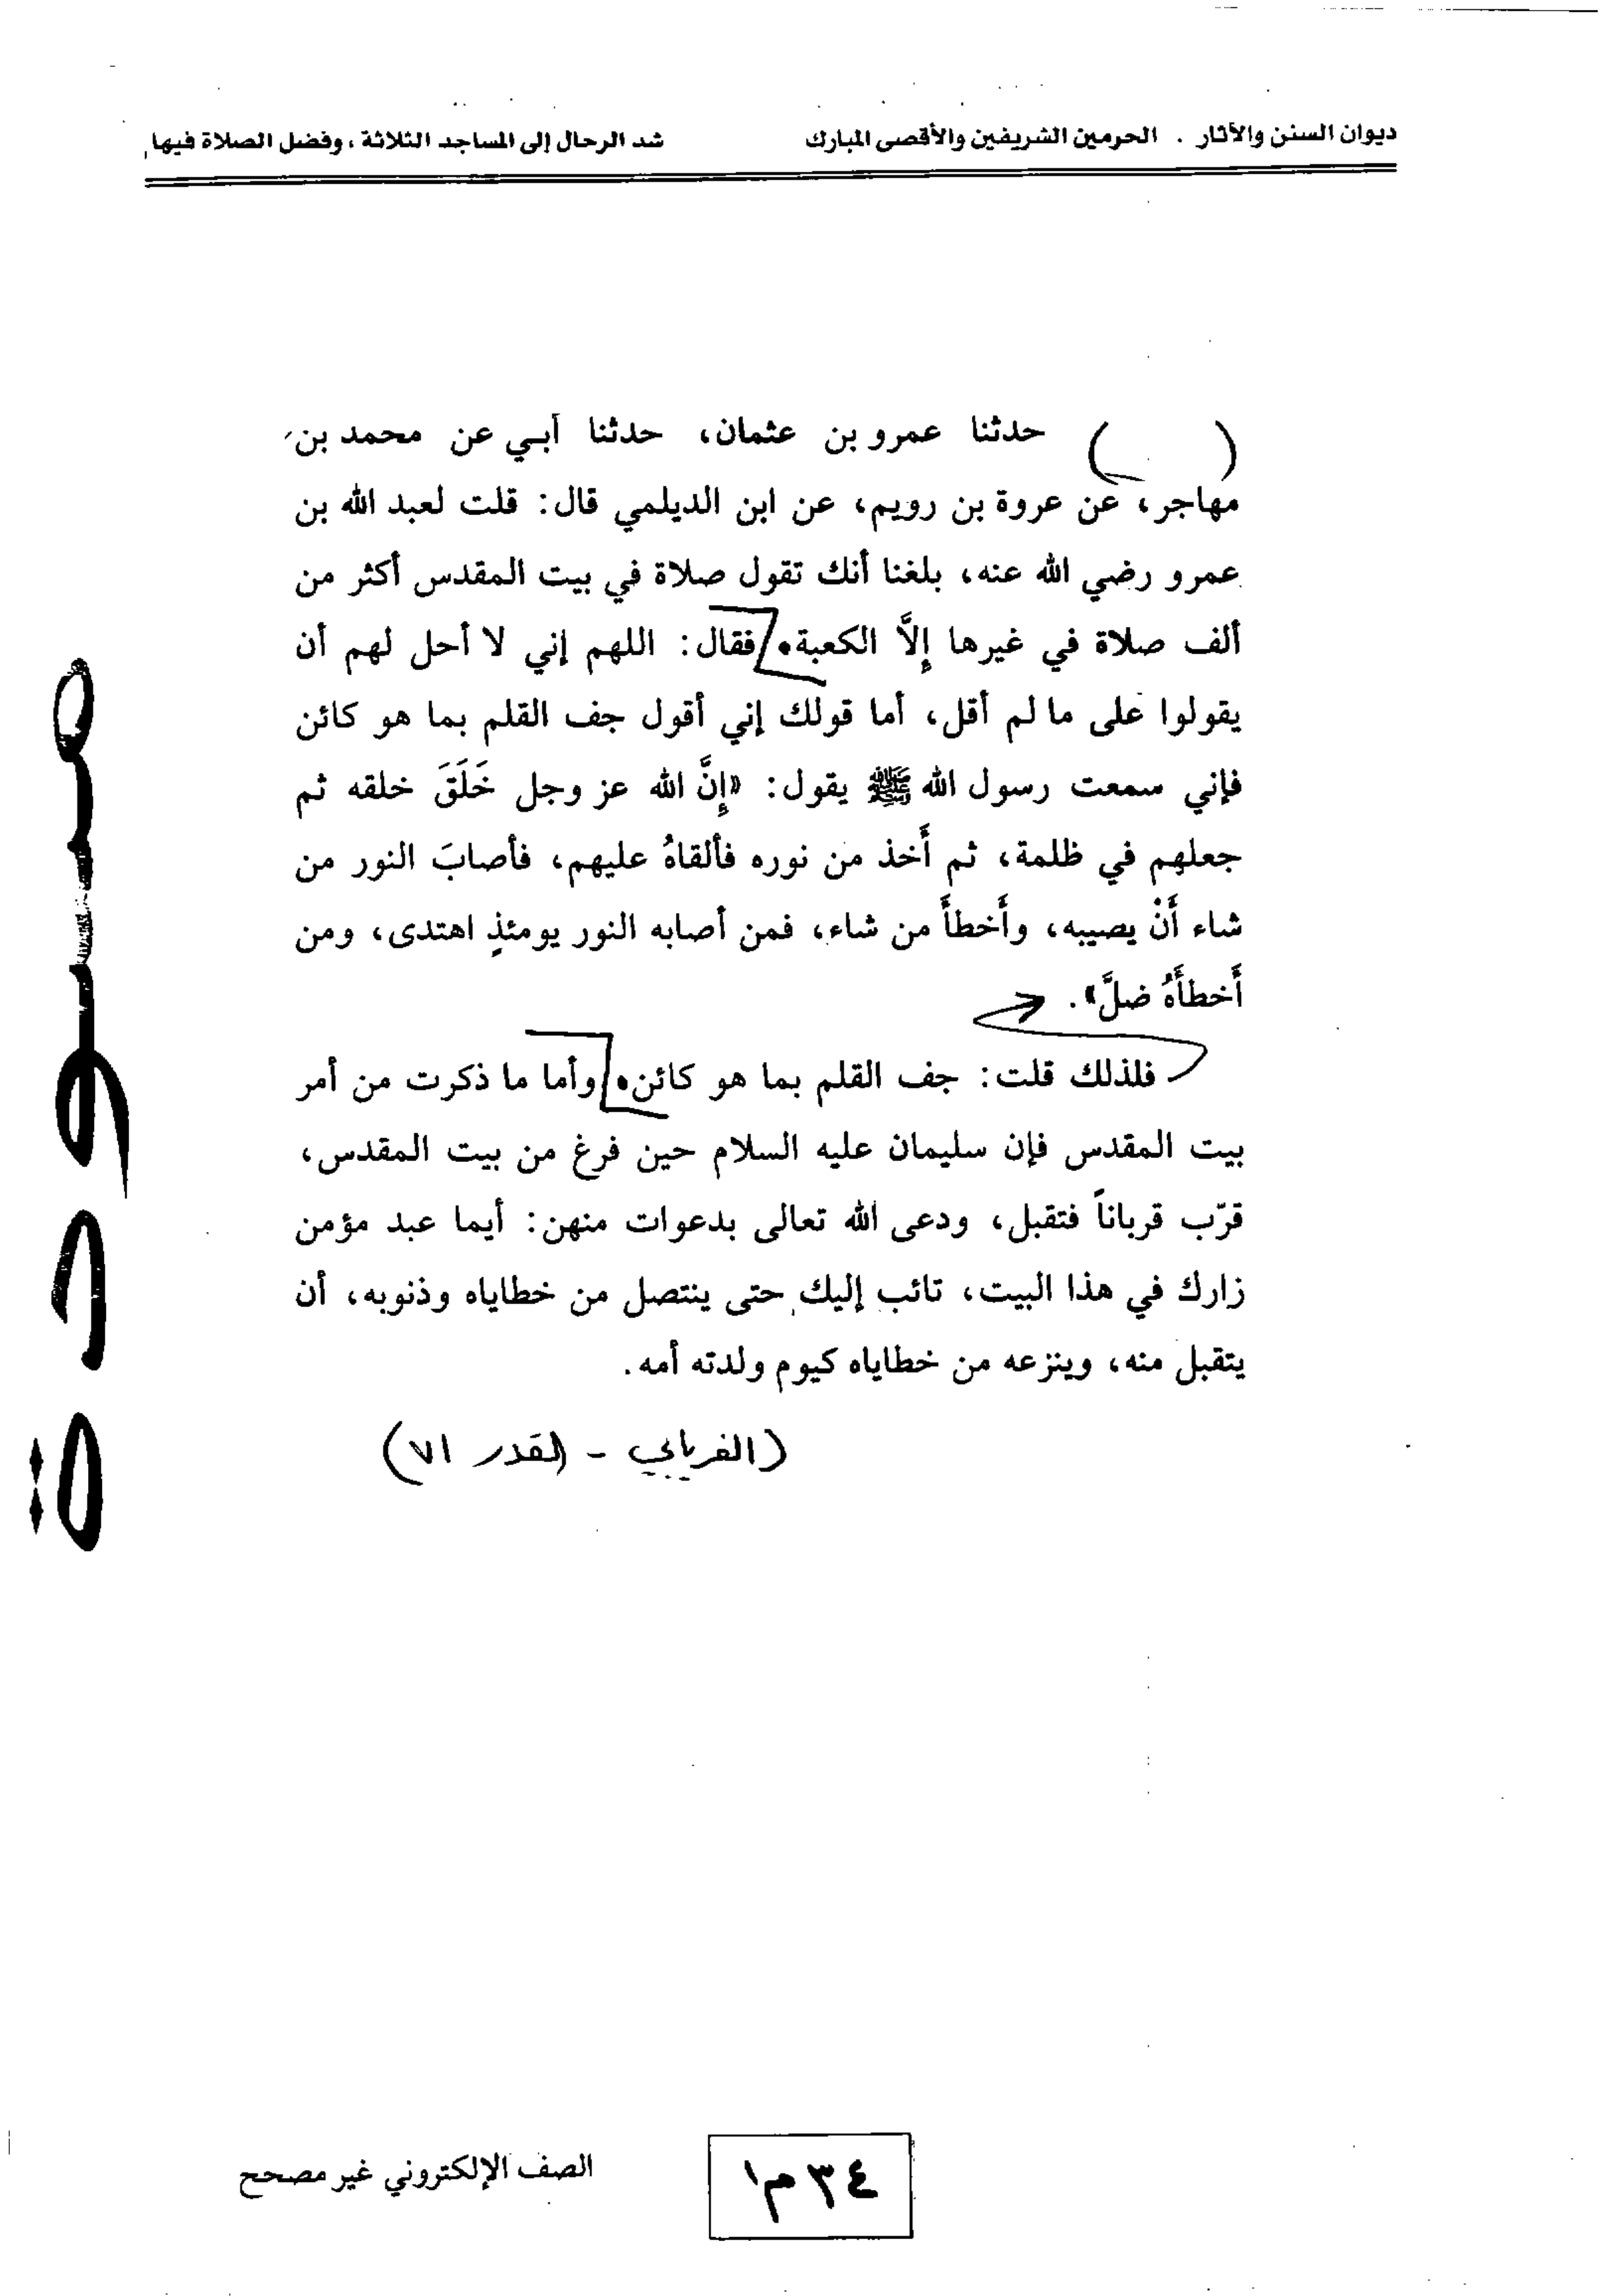 ديوان السنن والآثار . الحرمين الشريفين والأقصى المبارك شد الرحال إلى المساجد الثلاثة ، وفضل الصلاة فيها
( ) حدثنا عمرو بن عثمان، حدثنا أبي عن محمد بن
مهاجر، عن عروة بن رويم، عن ابن الديلمي قال: قلت لعبد الله بن
عمرو رضي الله عنه، بلغنا أنك تقول صلاة في بيت المقدس أكثر من
ألف صلاة في غيرها إِلاَّ الكعبة. فقال: اللهم إني لا أحل لهم أن
يقولوا على ما لم أقل، أما قولك إني أقول جف القلم بما هو كائن
فإني سمعت رسول الله ﷺ يقول: «إِنَّ الله عز وجل خَلَقَ خلقه ثم
جعلهم في ظلمة، ثم أَخذ من نوره فألقاهُ عليهم، فأصابَ النور من
شاء أَنْ يصيبه، وأَخطأَ من شاء، فمن أصابه النور يومئذٍ اهتدى، ومن
أَخطأَهُ ضلَّ».
فلذلك قلت: جف القلم بما هو كائن. وأما ما ذكرت من أمر
بيت المقدس فإن سليمان عليه السلام حين فرغ من بيت المقدس،
قرّب قرباناً فتقبل، ودعى الله تعالى بدعوات منهن: أيما عبد مؤمن
زارك في هذا البيت، تائب إليك حتى ينتصل من خطاياه وذنوبه، أن
يتقبل منه، وينزعه من خطاياه كيوم ولدته أمه.
(الفريابي - القدر ٧١)
مسودة
٣٤ م١
الصف الإلكتروني غير مصحح